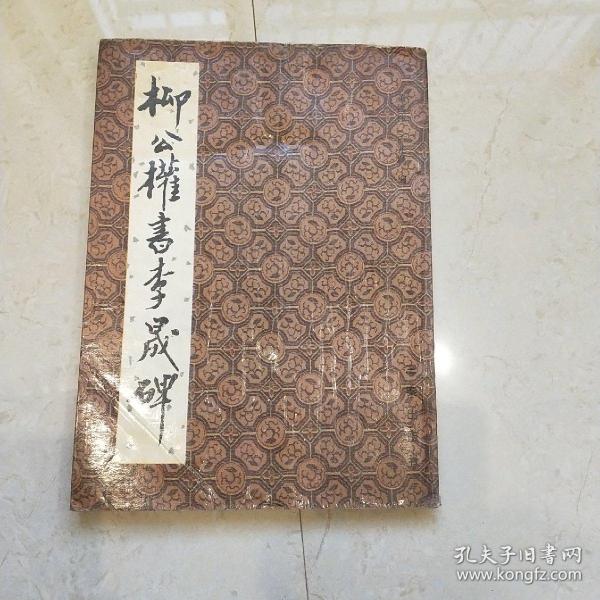 柳公權書李晟碑
孔夫子旧書网
www.kongfz.com